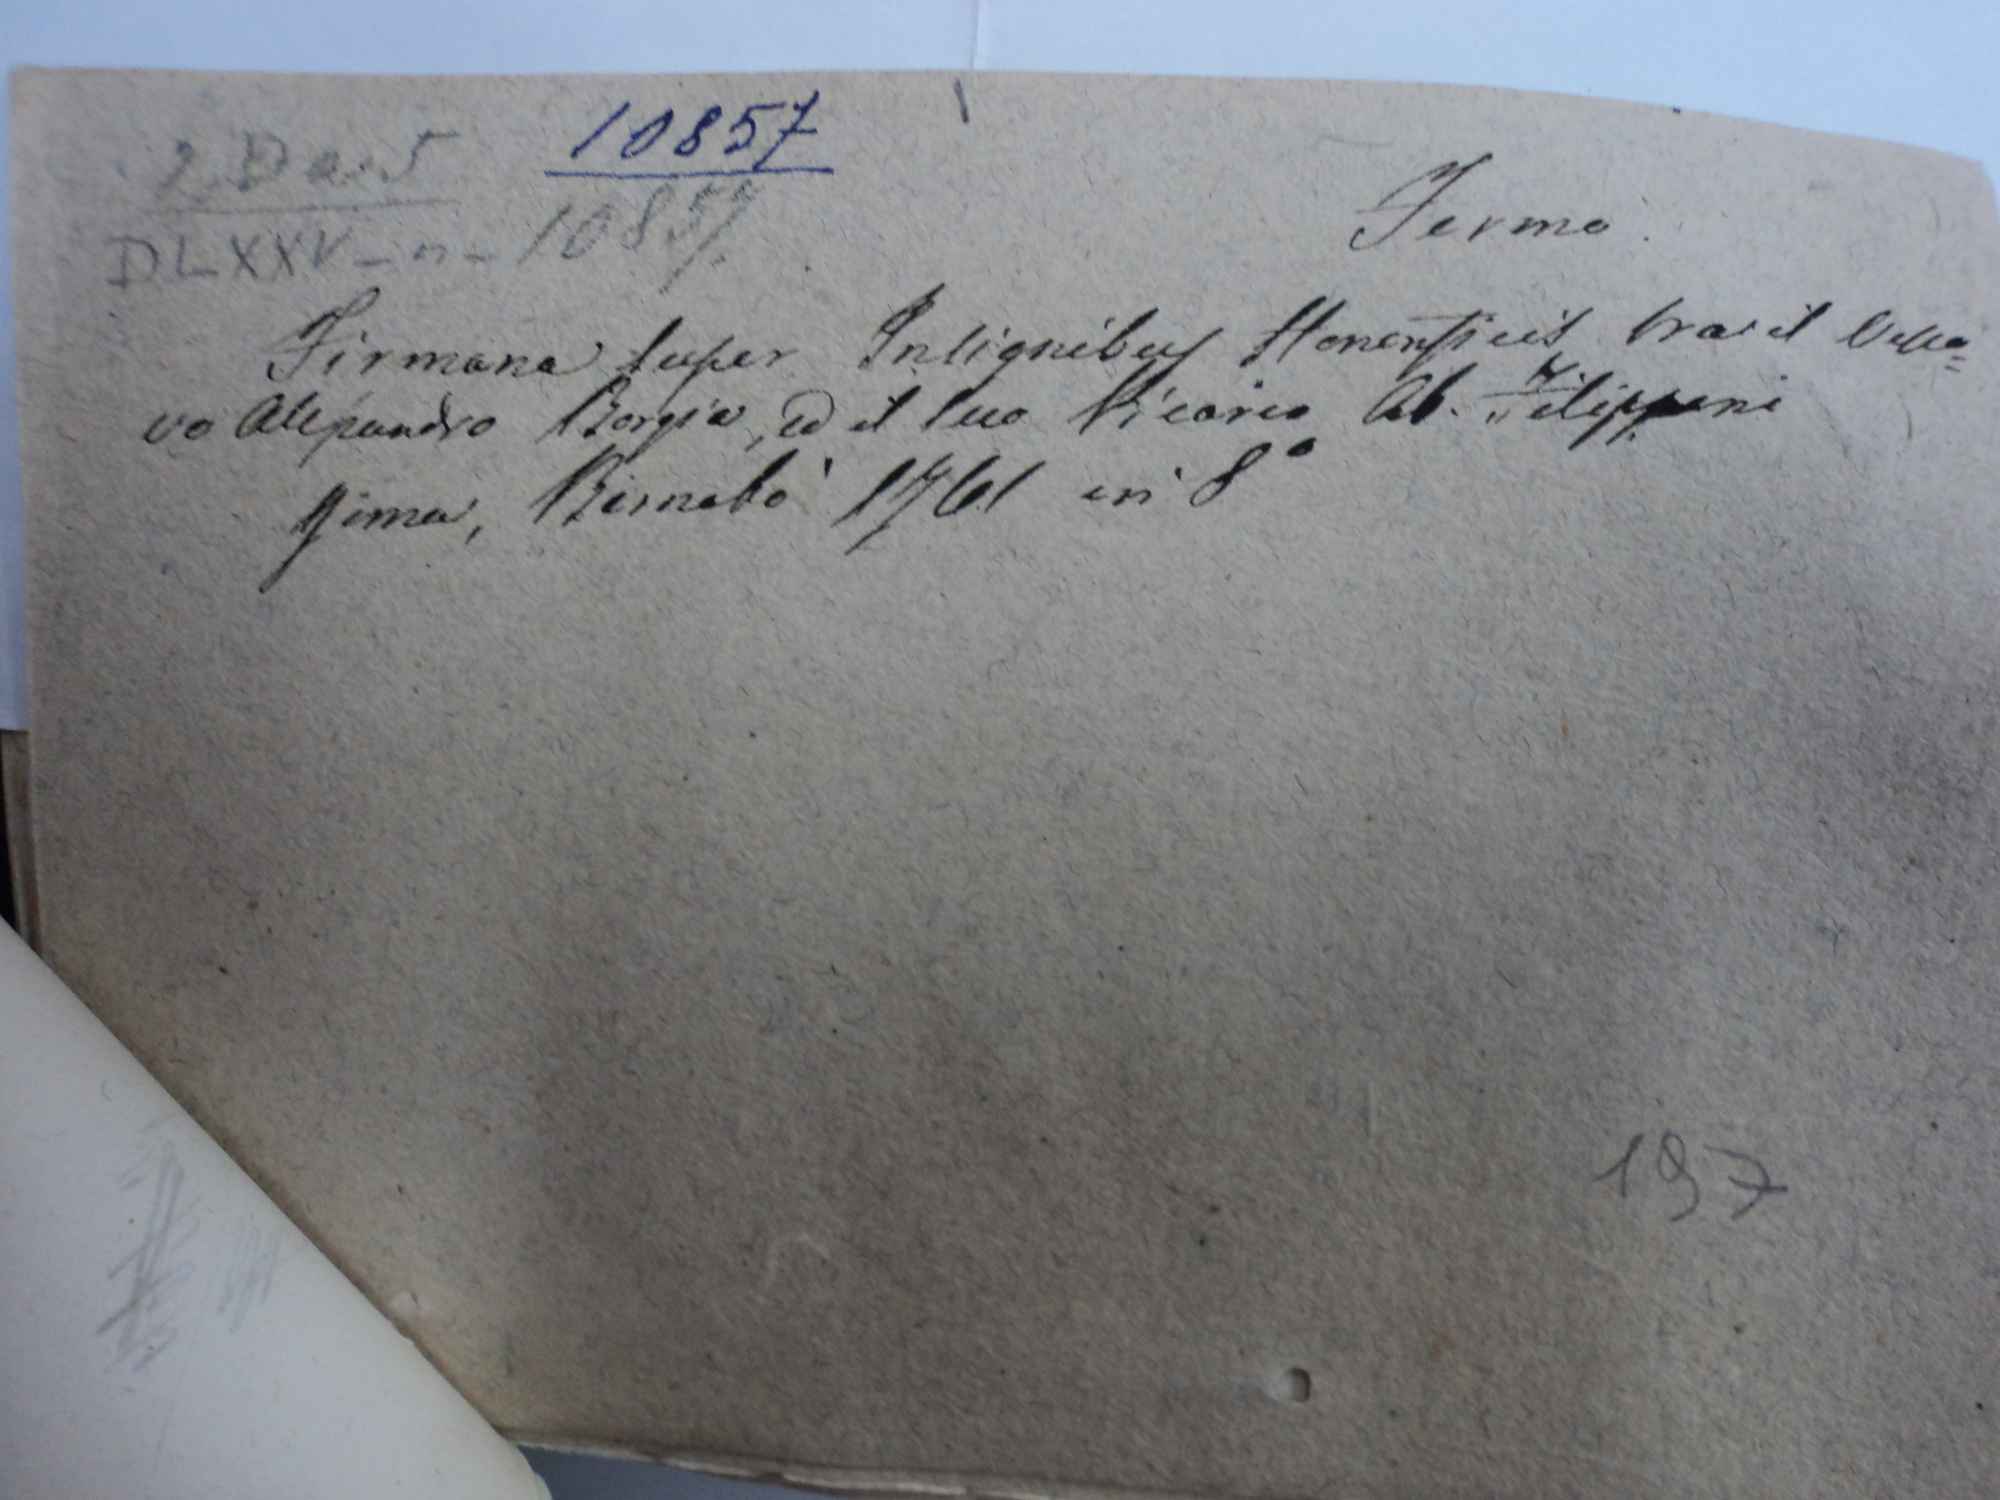 2 Da. 5
10857
DLXXV - n - 10857
Fermo.
Firmana super Insignibus Honorificis tra il Vesco=
vo Alessandro Borgia, ed il suo Vicario Ab. Filippini
Roma, Bernabò 1761 in 8°
197